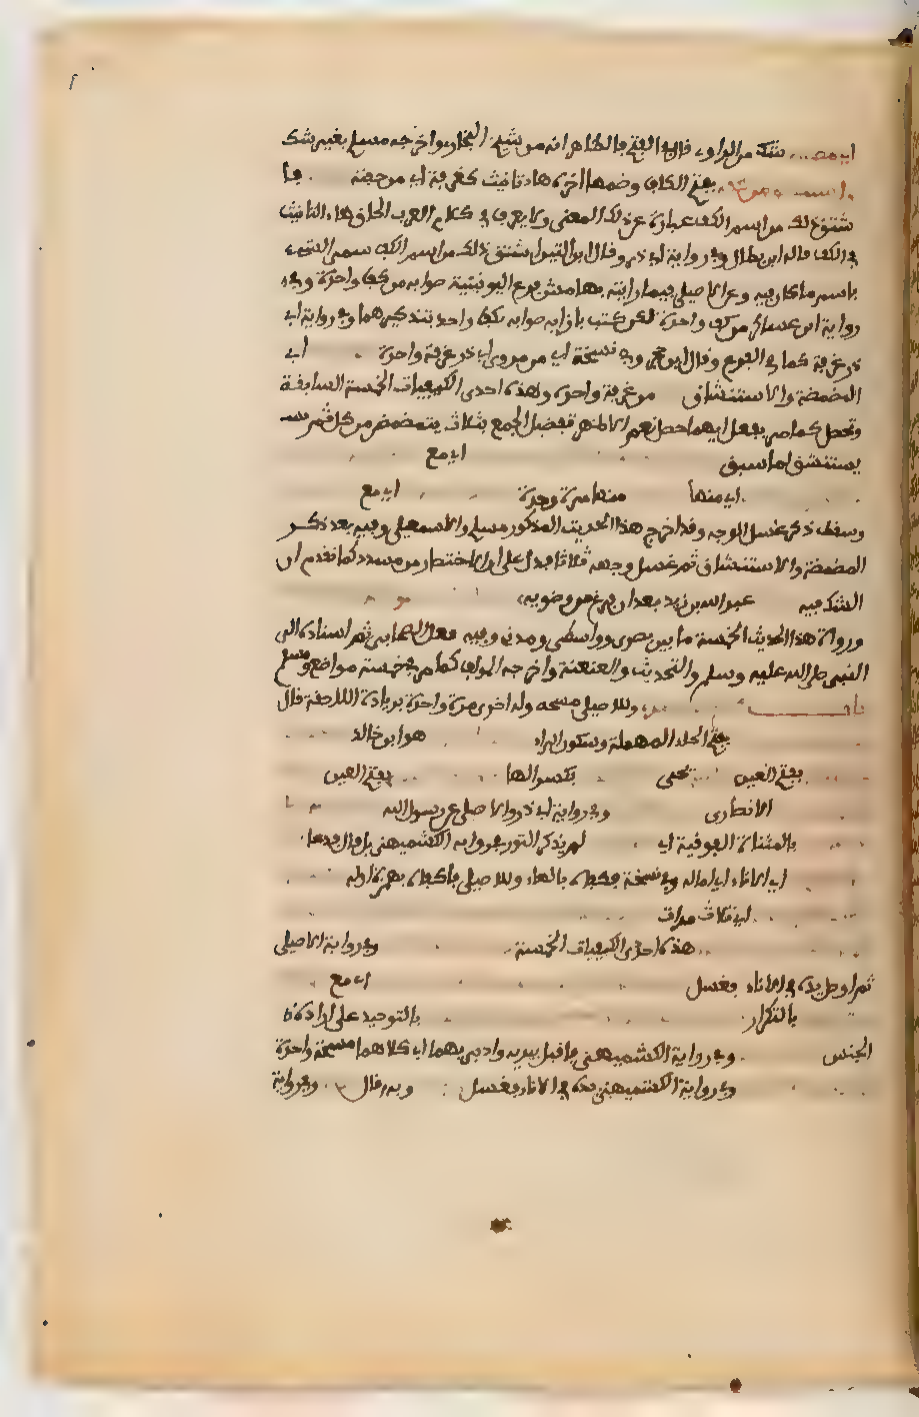 شك من الراوي قال في الفتح فالظاهر انه من شيخ البخاري واخرجه مسلم بغير شك
بفتح الكاف وضمها اخره هاء تانيث كغرفة اي من حفنة فا
شتق ذلك من اسم الكف عبارة عن ذلك المعنى ولا يعرف في كلام العرب الحاق هاء التانيث
في الكف قاله ابن بطال وفي رواية ابي ذر وقال ابن التين اشتق ذلك من اسم الكف سمي الشيء
باسم ما كان فيه وعن الاصيلي فيما رايته بهامش فرع اليونينية صوابه من كف واحدة وفي
رواية ابن عساكر من كف واحدة لكن كتب بازايه صوابه كف واحد بتذكيرهما وفي رواية ابي
ذر غرفة كما في الفرع وقال ابن حجر وفي نسخة اي من مروي ابي ذر غرفة واحدة اي
المضمضة والاستنشاق من غرفة واحدة وهذه احدى الكيفيات الخمسة السابقة
وتحصل كما مر بفعل ايهما حصل نعم الاظهر تفضيل الجمع بثلاث يتمضمض من كل ثم
يستنشق لما سبق اي مع
اي منها منهما مرة واحدة اي مع
وسقط ذكر غسل الوجه وقد اخرج هذا الحديث المذكور مسلم والاسمعيلي وفيه بعد ذكر
المضمضة والاستنشاق ثم غسل وجهه ثلاثا فدل على ان الاختصار من مسدد كما تقدم ان
الشك فيه عبد الله بن زيد بعد ان فرغ من وضويه
ورواة هذا الحديث الخمسة ما بين بصري وواسطي ومدني وفيه فعل الصحابي ثم اسناده الى
النبي صلى الله عليه وسلم والتحديث والعنعنة واخرجه المولف كما مر في خمسة مواضع ومسلم
باب وللاصيلي مسحه وله اخرى مرة واحدة بزيادة اللاحقة قال
بفتح الحاء المهملة وسكون الراء هو ابن خالد
بفتح العين يحيى بكسر الها بفتح العين
الانصاري وفي رواية ابي ذر والاصيلي عن رسول الله
بالمثناة الفوقية اي لم يذكر التور في رواية الكشميهني بل قال فدعا
اي الاناء اي اماله وفي نسخة فكفاه بالهاء وللاصيلي فاكفاه بهمزة اوله
اي ثلاث مرات
هذه احدى الكيفيات الخمسة وفي رواية الاصيلي
ثم ادخل يده في الاناء فغسل اي مع
بالتكرار بالتوحيد على ارادة
الجنس وفي رواية الكشميهني فاقبل بيديه وادبر بهما اي كلاهما مسحة واحدة
وفي رواية الكشميهني يده في الاناء فغسل وبه قال وفي رواية